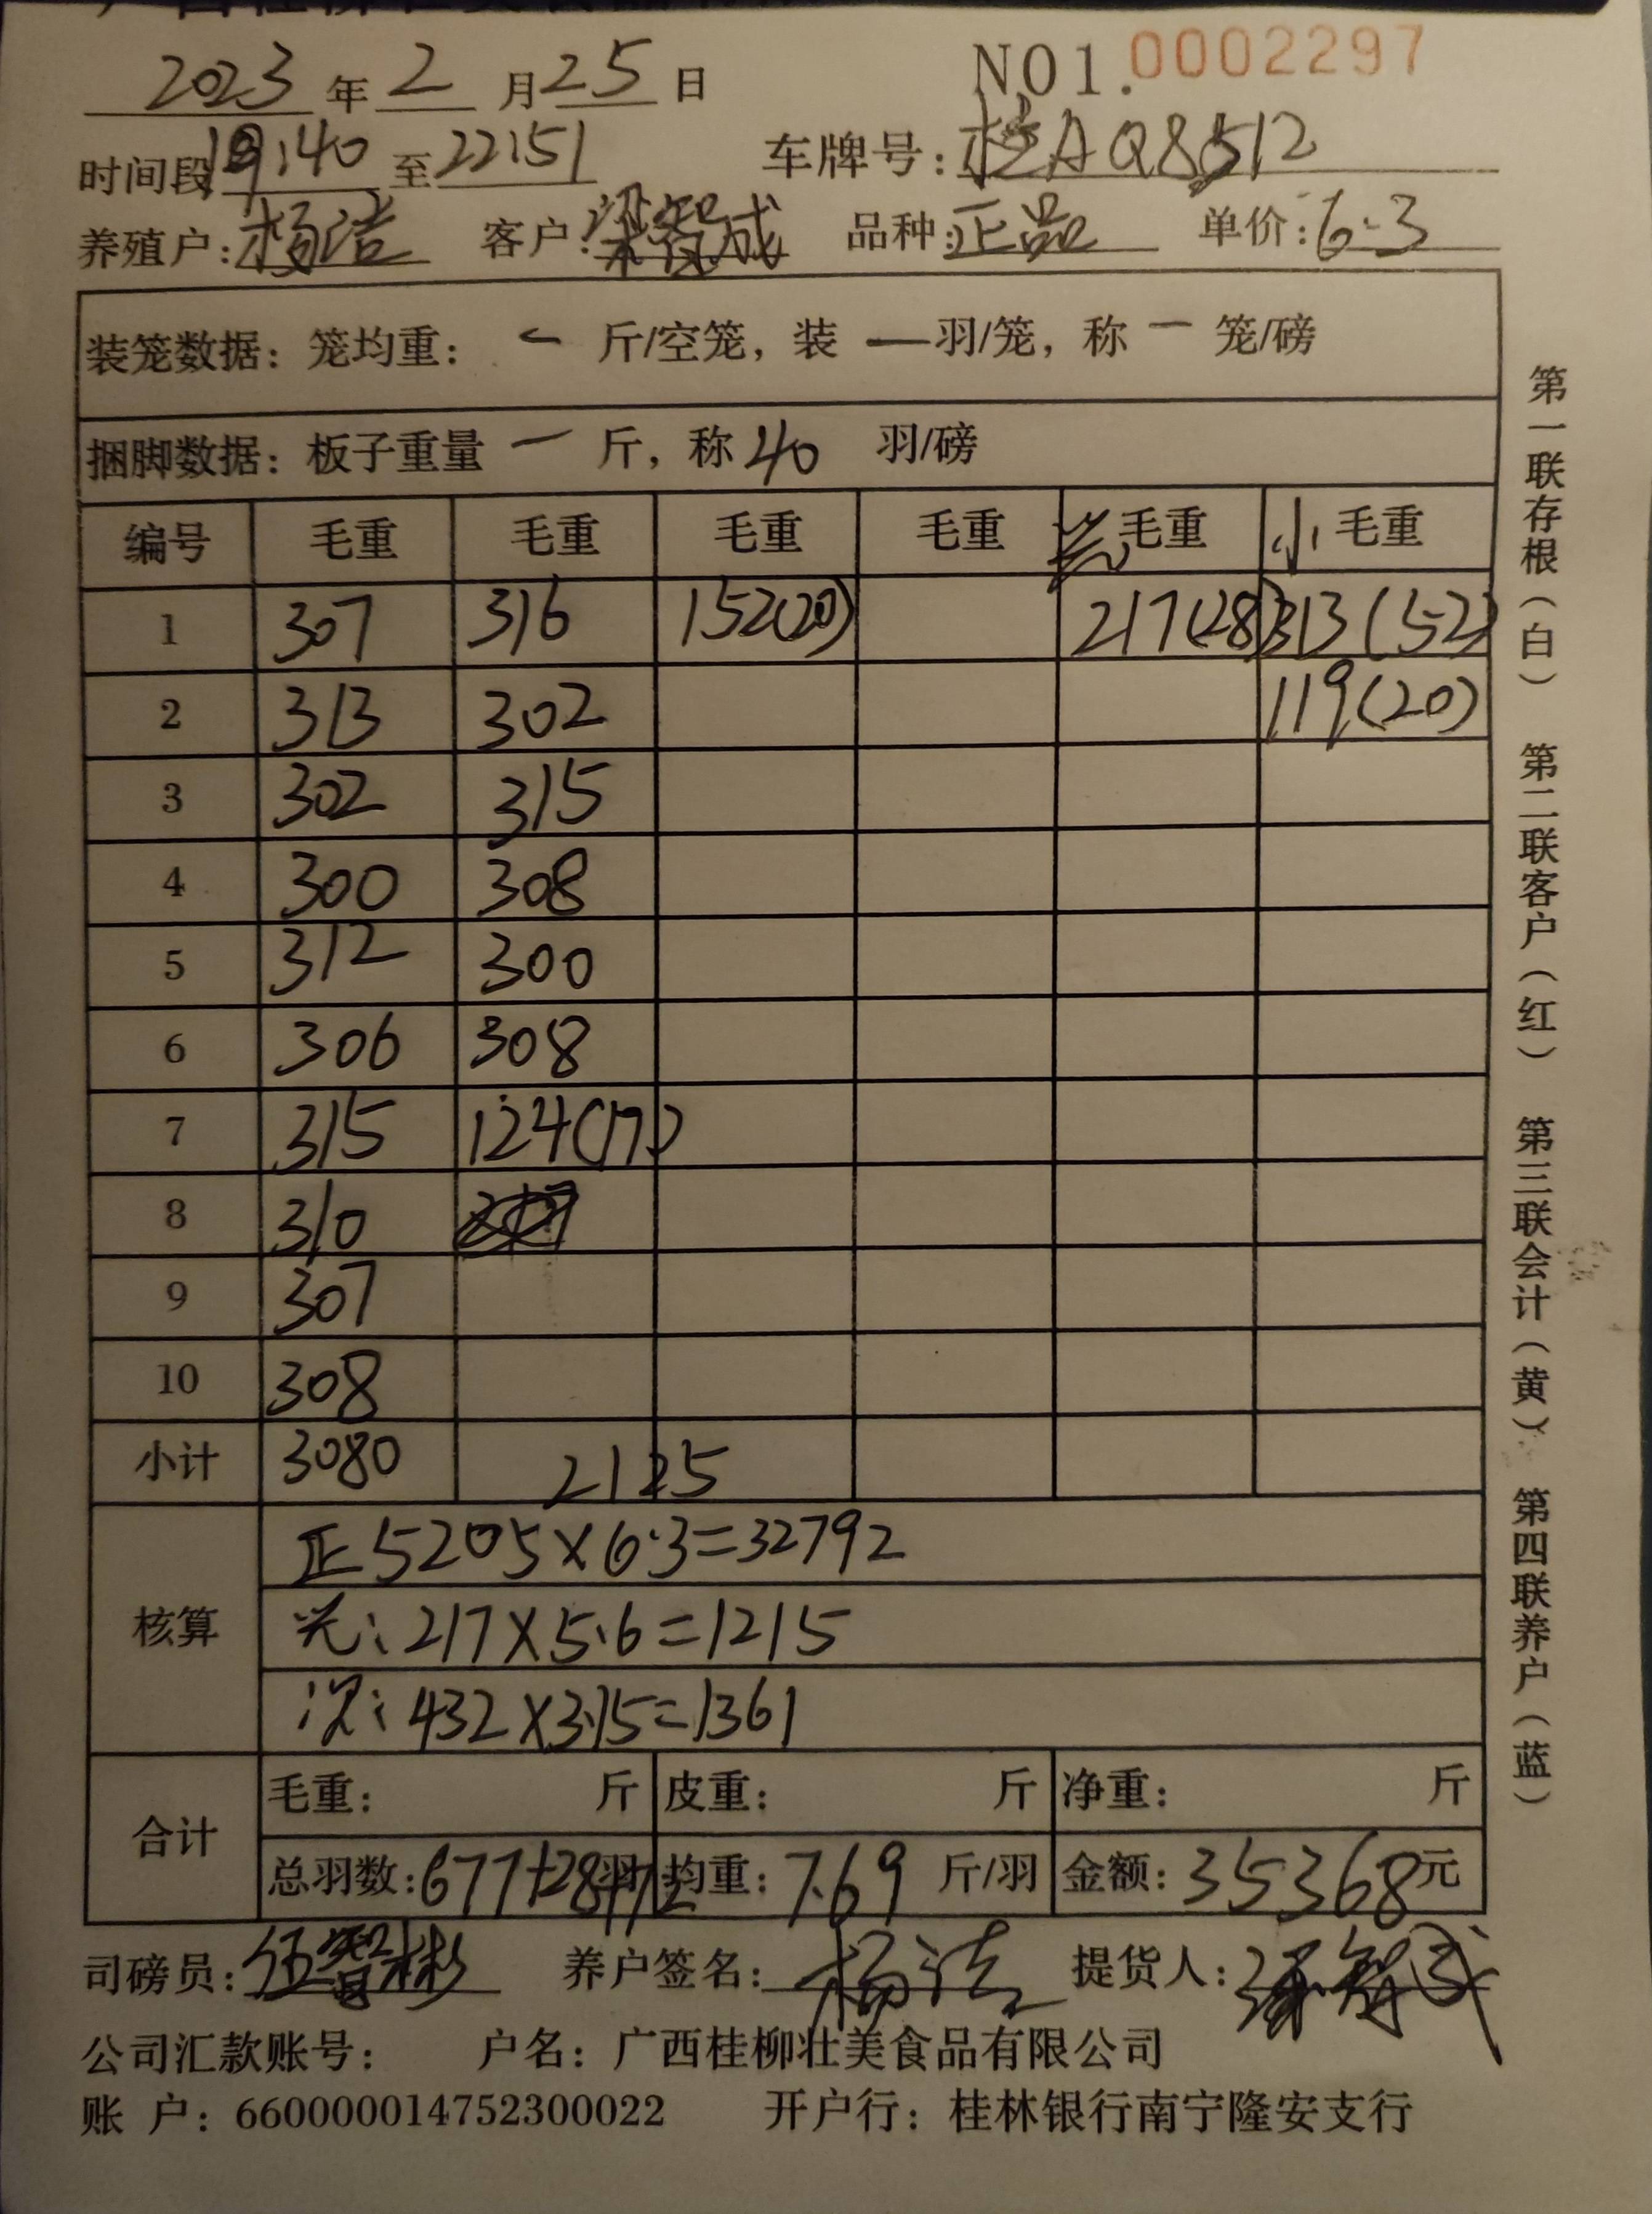 2023年2月25日 NO1.0002297
时间段19:40至22:51 车牌号:桂AQ8512
养殖户:杨洁 客户:梁智成 品种:正品 单价:6.3
装笼数据:笼均重: — 斤/空笼,装 — 羽/笼,称 — 笼/磅
捆脚数据:板子重量 — 斤,称 40 羽/磅
编号 毛重 毛重 毛重 毛重 毛重 小 毛重
1 307 316 152(20) 217(28) 313(52)
2 313 302 119(20)
3 302 315
4 300 308
5 312 300
6 306 308
7 315 124(17)
8 310
9 307
10 308
小计 3080 2125
核算
正5205×6.3=32792
光:217×5.6=1215
次:432×3.15=1361
合计
毛重: 斤 皮重: 斤 净重: 斤
总羽数:677+28+72羽 均重:7.69 斤/羽 金额:35368元
司磅员:伍智彬 养户签名:杨洁 提货人:梁智成
公司汇款账号: 户名:广西桂柳壮美食品有限公司
账 户:660000014752300022 开户行:桂林银行南宁隆安支行
第一联存根(白) 第二联客户(红) 第三联会计(黄) 第四联养户(蓝)